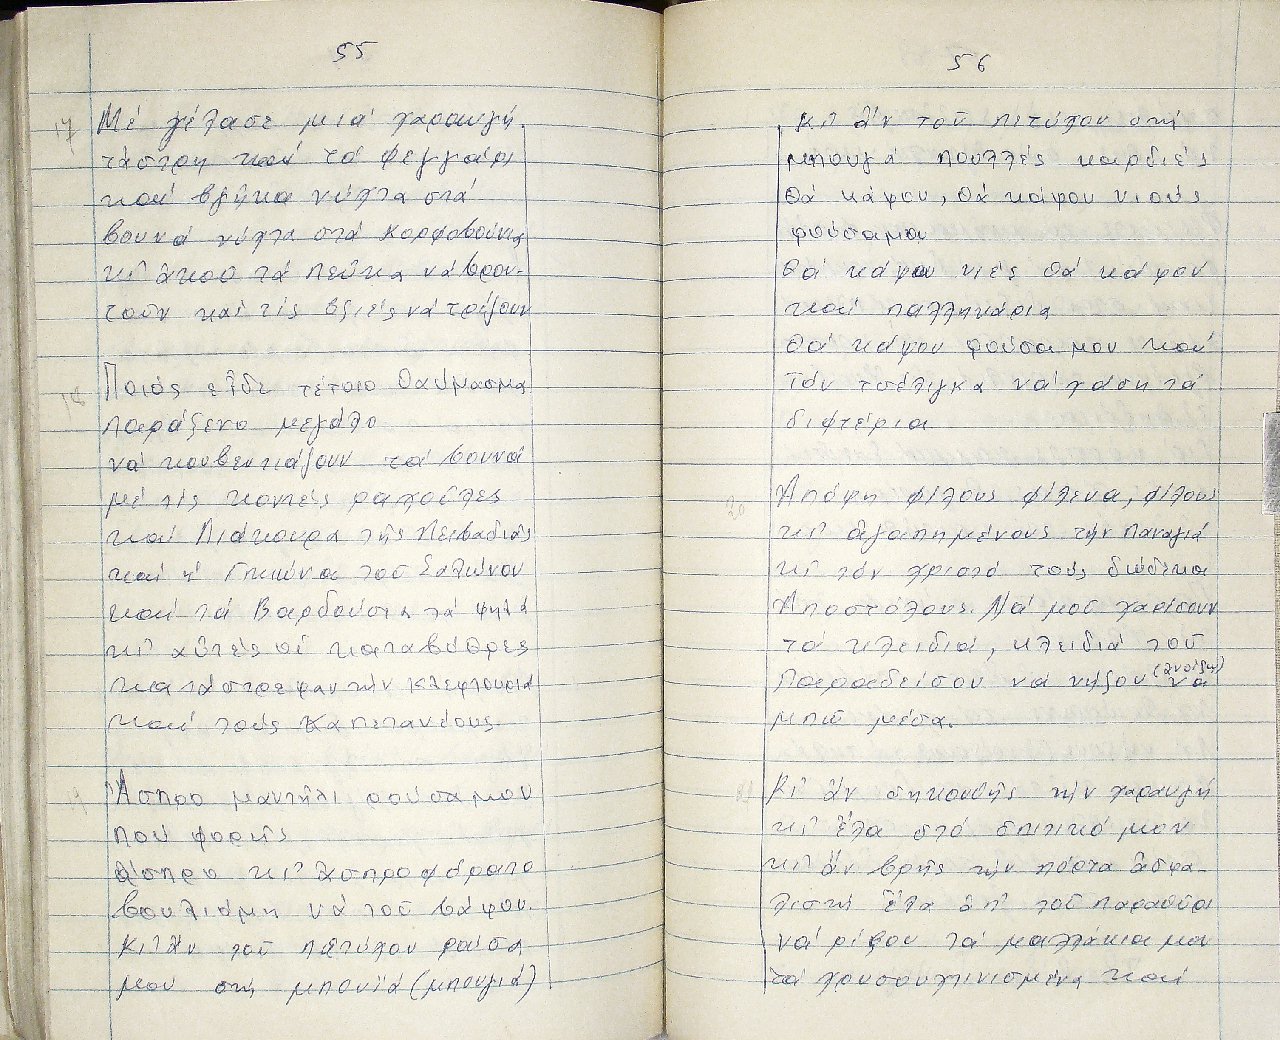 55
17 Μέ γέλασε μιά χαραυγή
τάστρη καί τό φεγγάρι
καί βγῆκα νύχτα στά
βουνά νύχτα στά κορφοβούνια
κι ἀκοσ τά πεῦκα νά βρον-
τοῦν καί τίς ὀξιές νά τρίζουν
18 Ποιός εἶδε τέτοιο θαύμασμα
παράξενο μεγάλο
νά κουβεντιάζουν τά βουνά
μέ τίς κοντές ραχοῦλες
καί Λιάκουρα τῆς Λειβαδιᾶς
καί ἡ Γκιώνα τοῦ Σαλώνου
καί τά Βαρδούσια τά ψηλά
κι αὐτές οἱ καταβόθρες
κατάστρεψαν τήν κλεφτουριά
καί τούς καπετανέους.
19 Ἄσπρο μαντήλι ρούσα μου
πού φορεῖς
ἄσπρο κι ἀσπροφόρατο
βουλιάμη νά τοῦ βάψου.
κι ἄν τοῦ πετύχου ρούσα
μου στή μπουϊά (μπουγιά)
56
κι ἄν τοῦ πετύχου στή
μπουγιά πολλές καρδιές
θά κάψου, θά κάψου νιούς
ρούσα μου
θά κάψου νιές θά κάψου
καί παλληκάρια
θά κάψου ρούσα μου καί
τόν τσέλιγκα νά χάση τά
διφτέρια
20 Ἀπόψη φίλους φίλευα, φίλους
κι ἀγαπημένους τήν Παναγιά
κι τόν χριστό τούς δώδεκα
Ἀποστόλους. Νά μοῦ χαρίσουν
τά κλειδιά, κλειδιά τοῦ
Παραδείσου νά νήξου (ἀνοίξω) νά
μπῶ μέσα.
Κι ἄν σηκωθῆς τήν χαραυγή
κι ἔλα στό σπιτικό μου
κι ἄν βρῆς τήν πόρτα ἀσφα-
λιστή ἔλα ἀπ' τοῦ παραθύρι
νά ρίξου τά μαλλάκια μου
τά χρυσουχτινισμένα καί